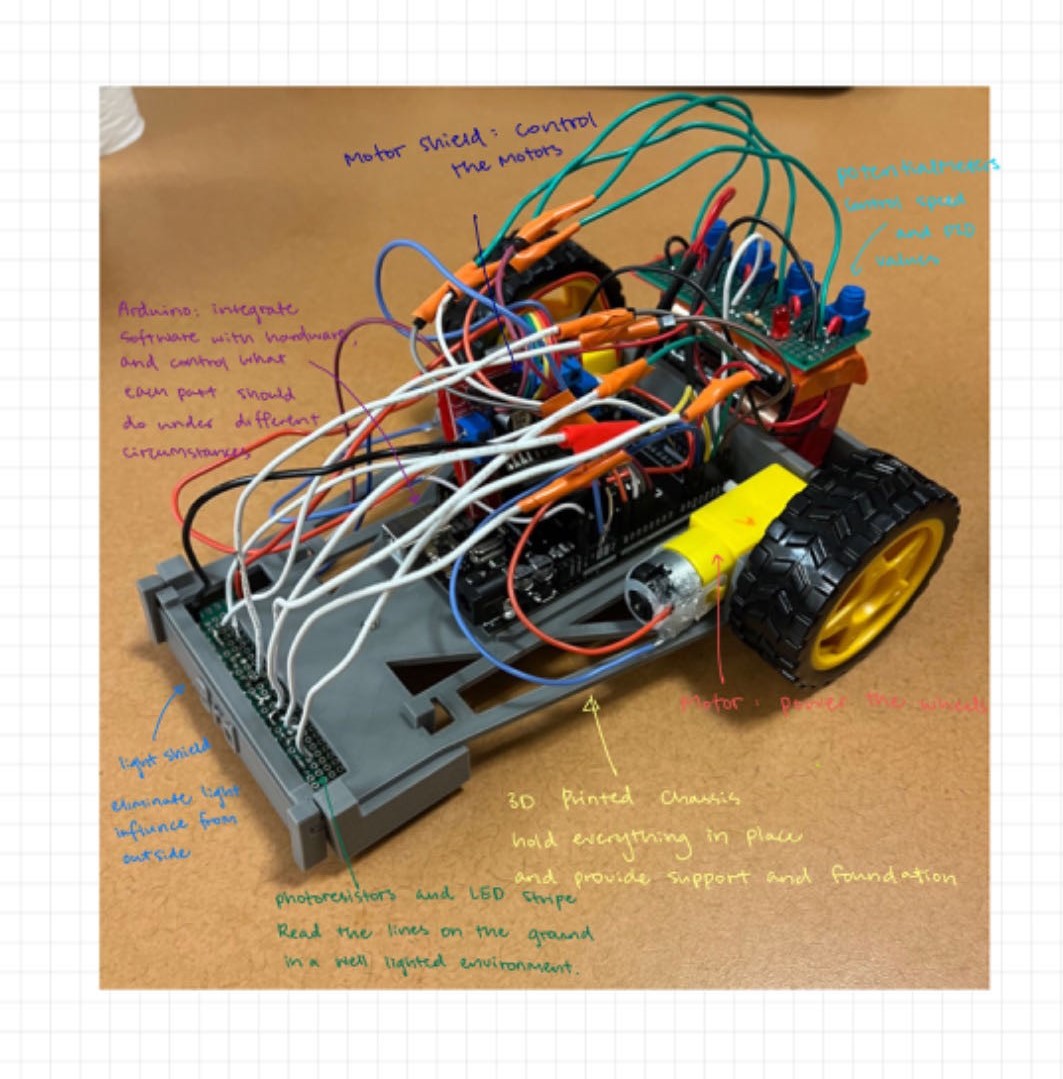 Motor shield: control
the motors
potentialmeters
control speed
and PID
values
Arduino: integrate
software with hardware,
and control what
each part should
do under different
circumstances
Motor: power the wheels
light shield
eliminate light
influnce from
outside
3D Printed Chassis
hold everything in place
and provide support and foundation
photoresistors and LED Stripe
Read the lines on the ground
in a well lighted environment.